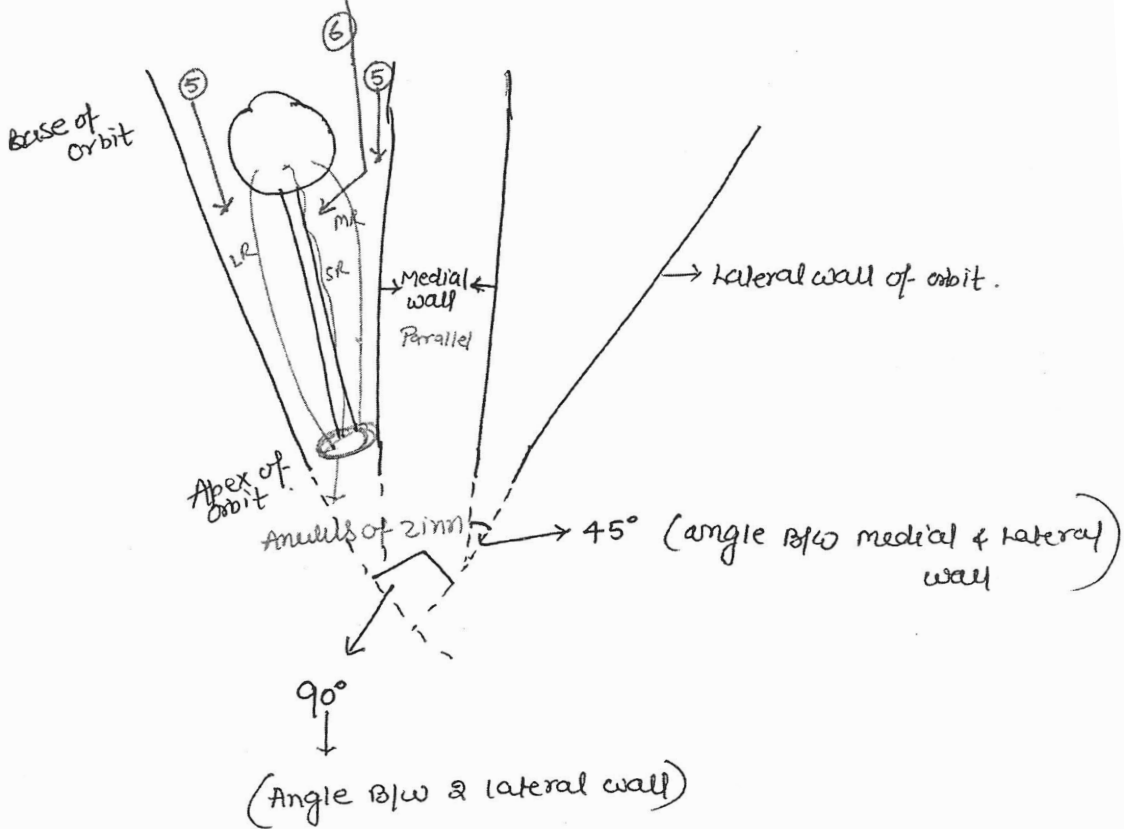 6
5
5
Base of
orbit
LR
SR
MR
Medial
wall
Parallel
Lateral wall of orbit.
Apex of
orbit.
Anulus of zinn
45° (angle B/w medial & Lateral
wall)
90°
(Angle B/w 2 lateral wall)